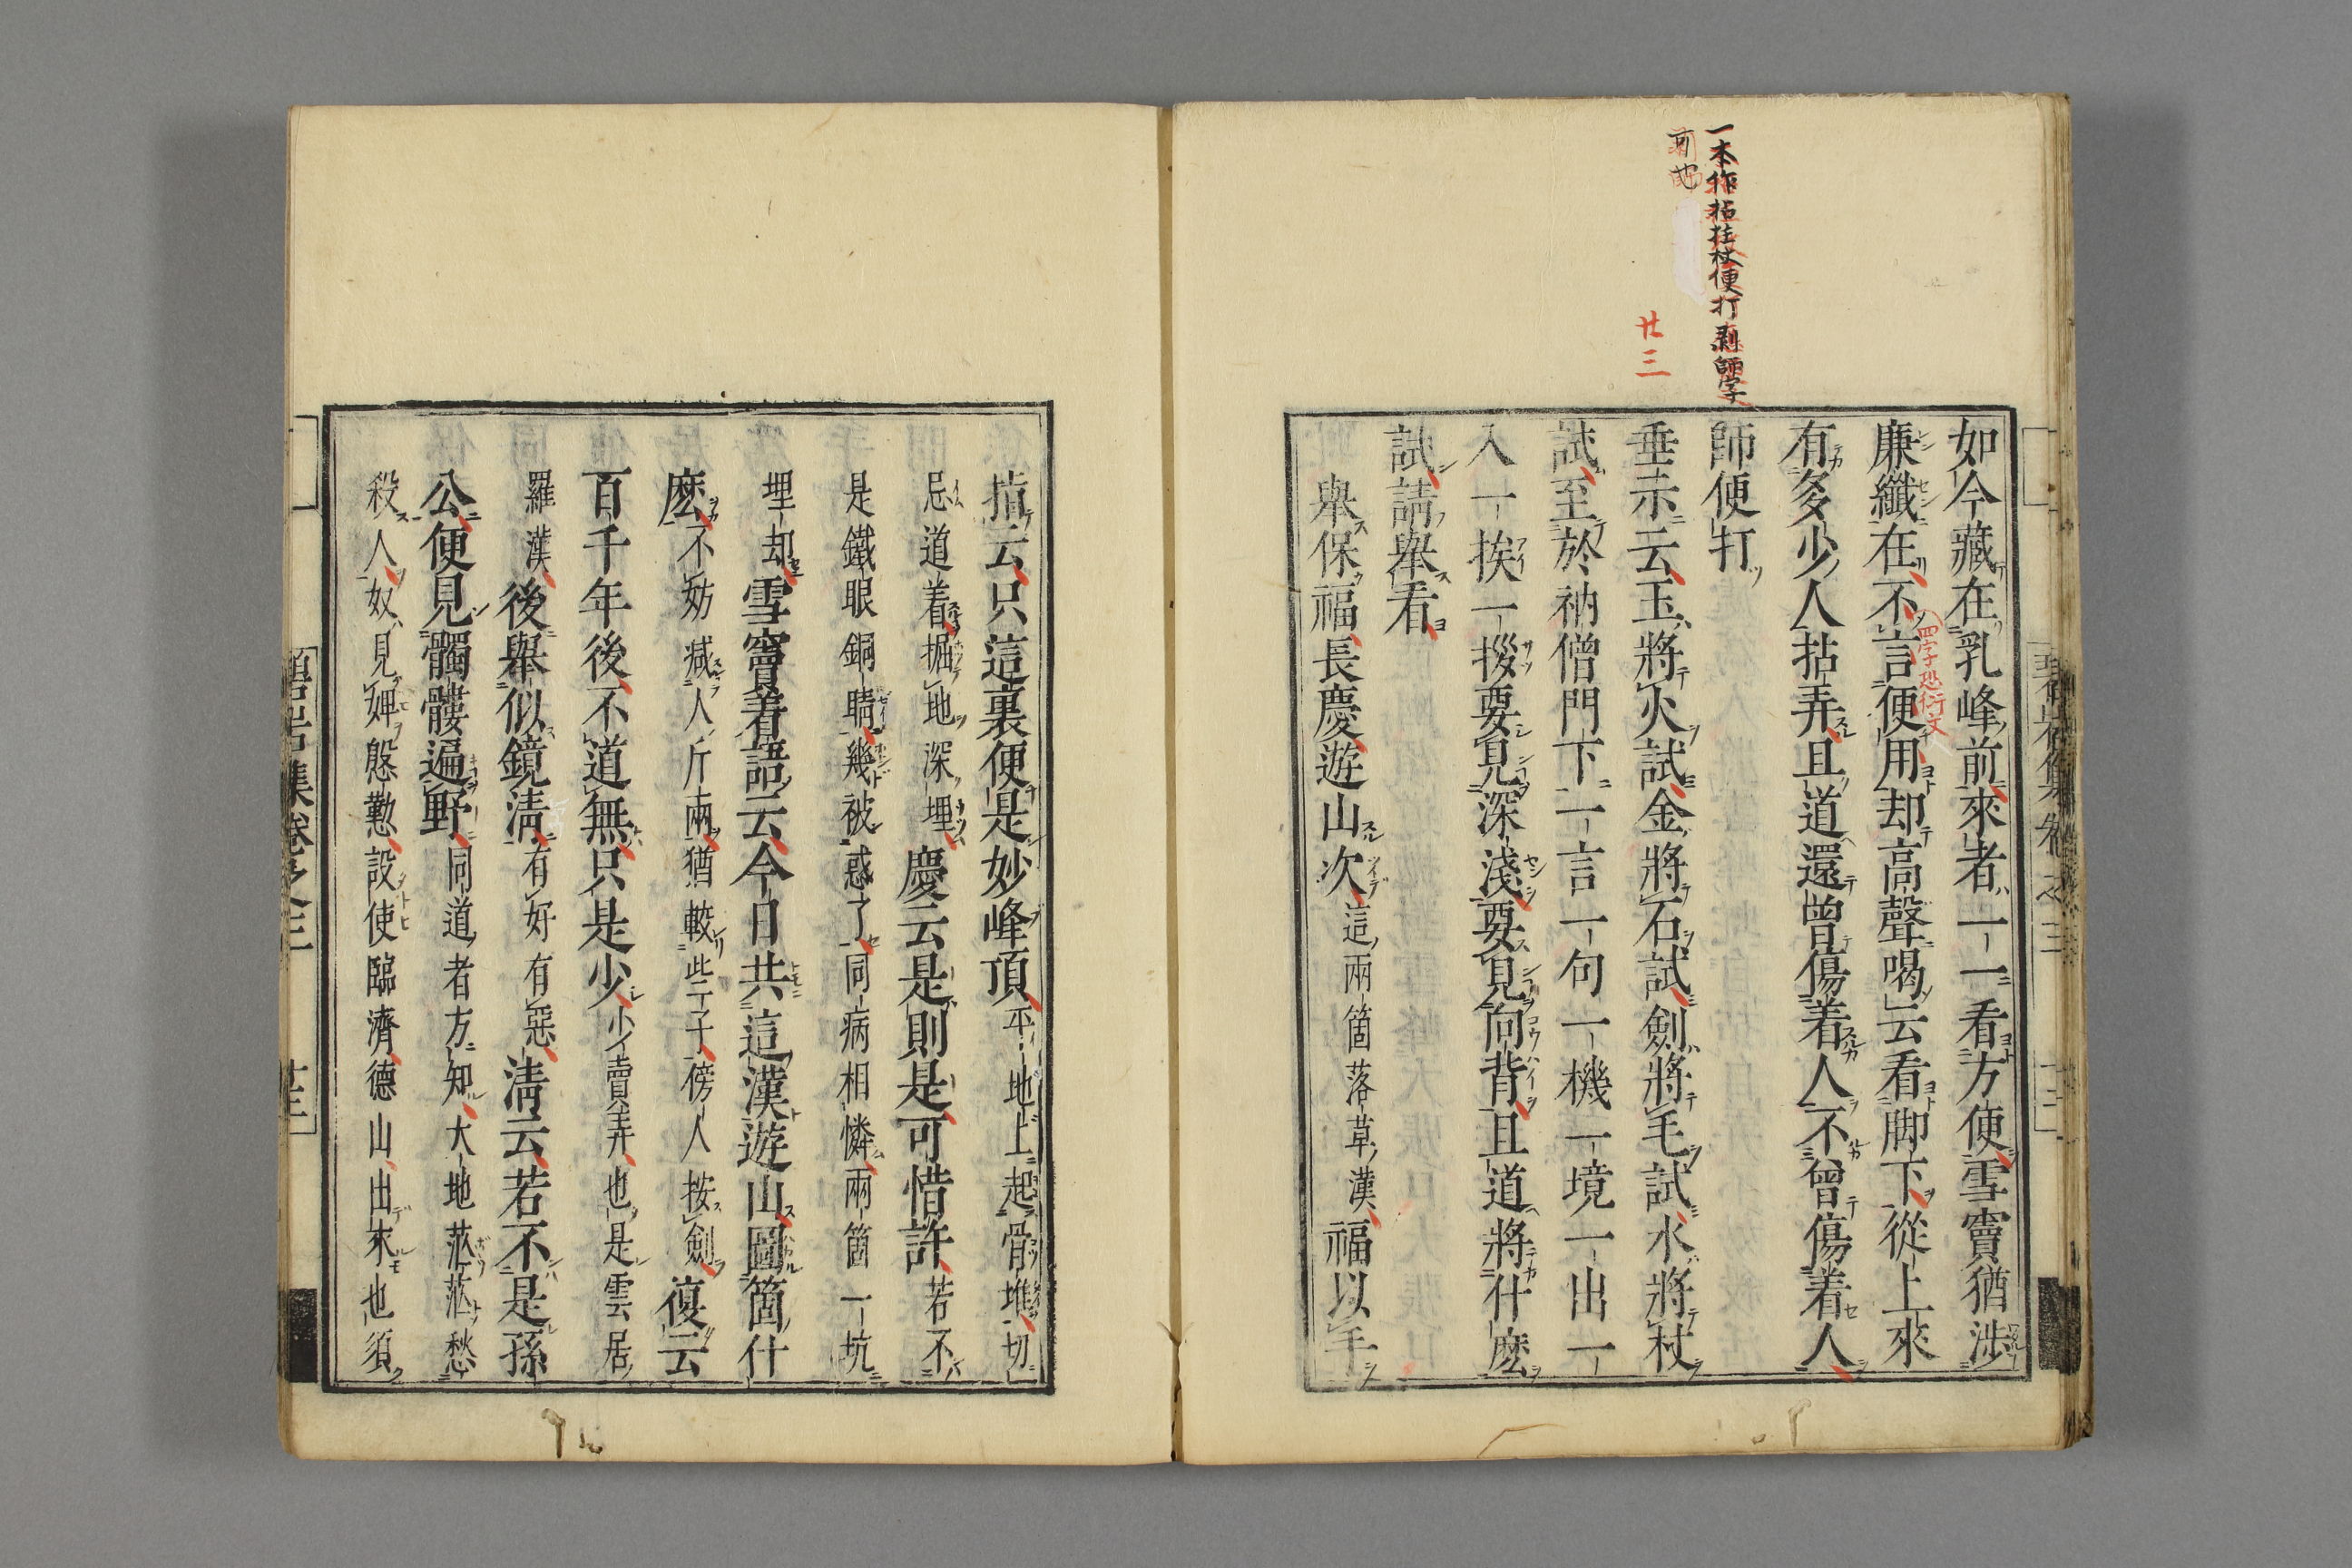 一本作拈拄杖便打剩師字
可也
廿三
如今藏在乳峰前來者一一看方便雪竇猶涉
廉纖在不言便用却高聲喝云看脚下從上來
四字恐衍文
有多少人拈弄且道還曾傷着人不曾傷着人
師便打
垂示云玉將火試金將石試劍將毛試水將杖
試至於衲僧門下一言一句一機一境一出一
入一挨一拶要見深淺要見向背且道將什麽
試請舉看
舉保福長慶遊山次這兩箇落草漢福以手
指云只這裏便是妙峰頂平地上起骨堆切
忌道着掘地深埋慶云是則是可惜許若不
是鐵眼銅睛幾被惑了同病相憐兩箇一坑
埋却雪竇着語云今日共這漢遊山圖箇什
麽不妨減人斤兩猶較些子傍人按劍復云
百千年後不道無只是少少賣弄也是雲居
羅漢後舉似鏡清有好有惡清云若不是孫
公便見髑髏遍野同道者方知大地茫茫愁
殺人奴見婢慇懃設使臨濟德山出來也須
碧岩集卷之三
廿三